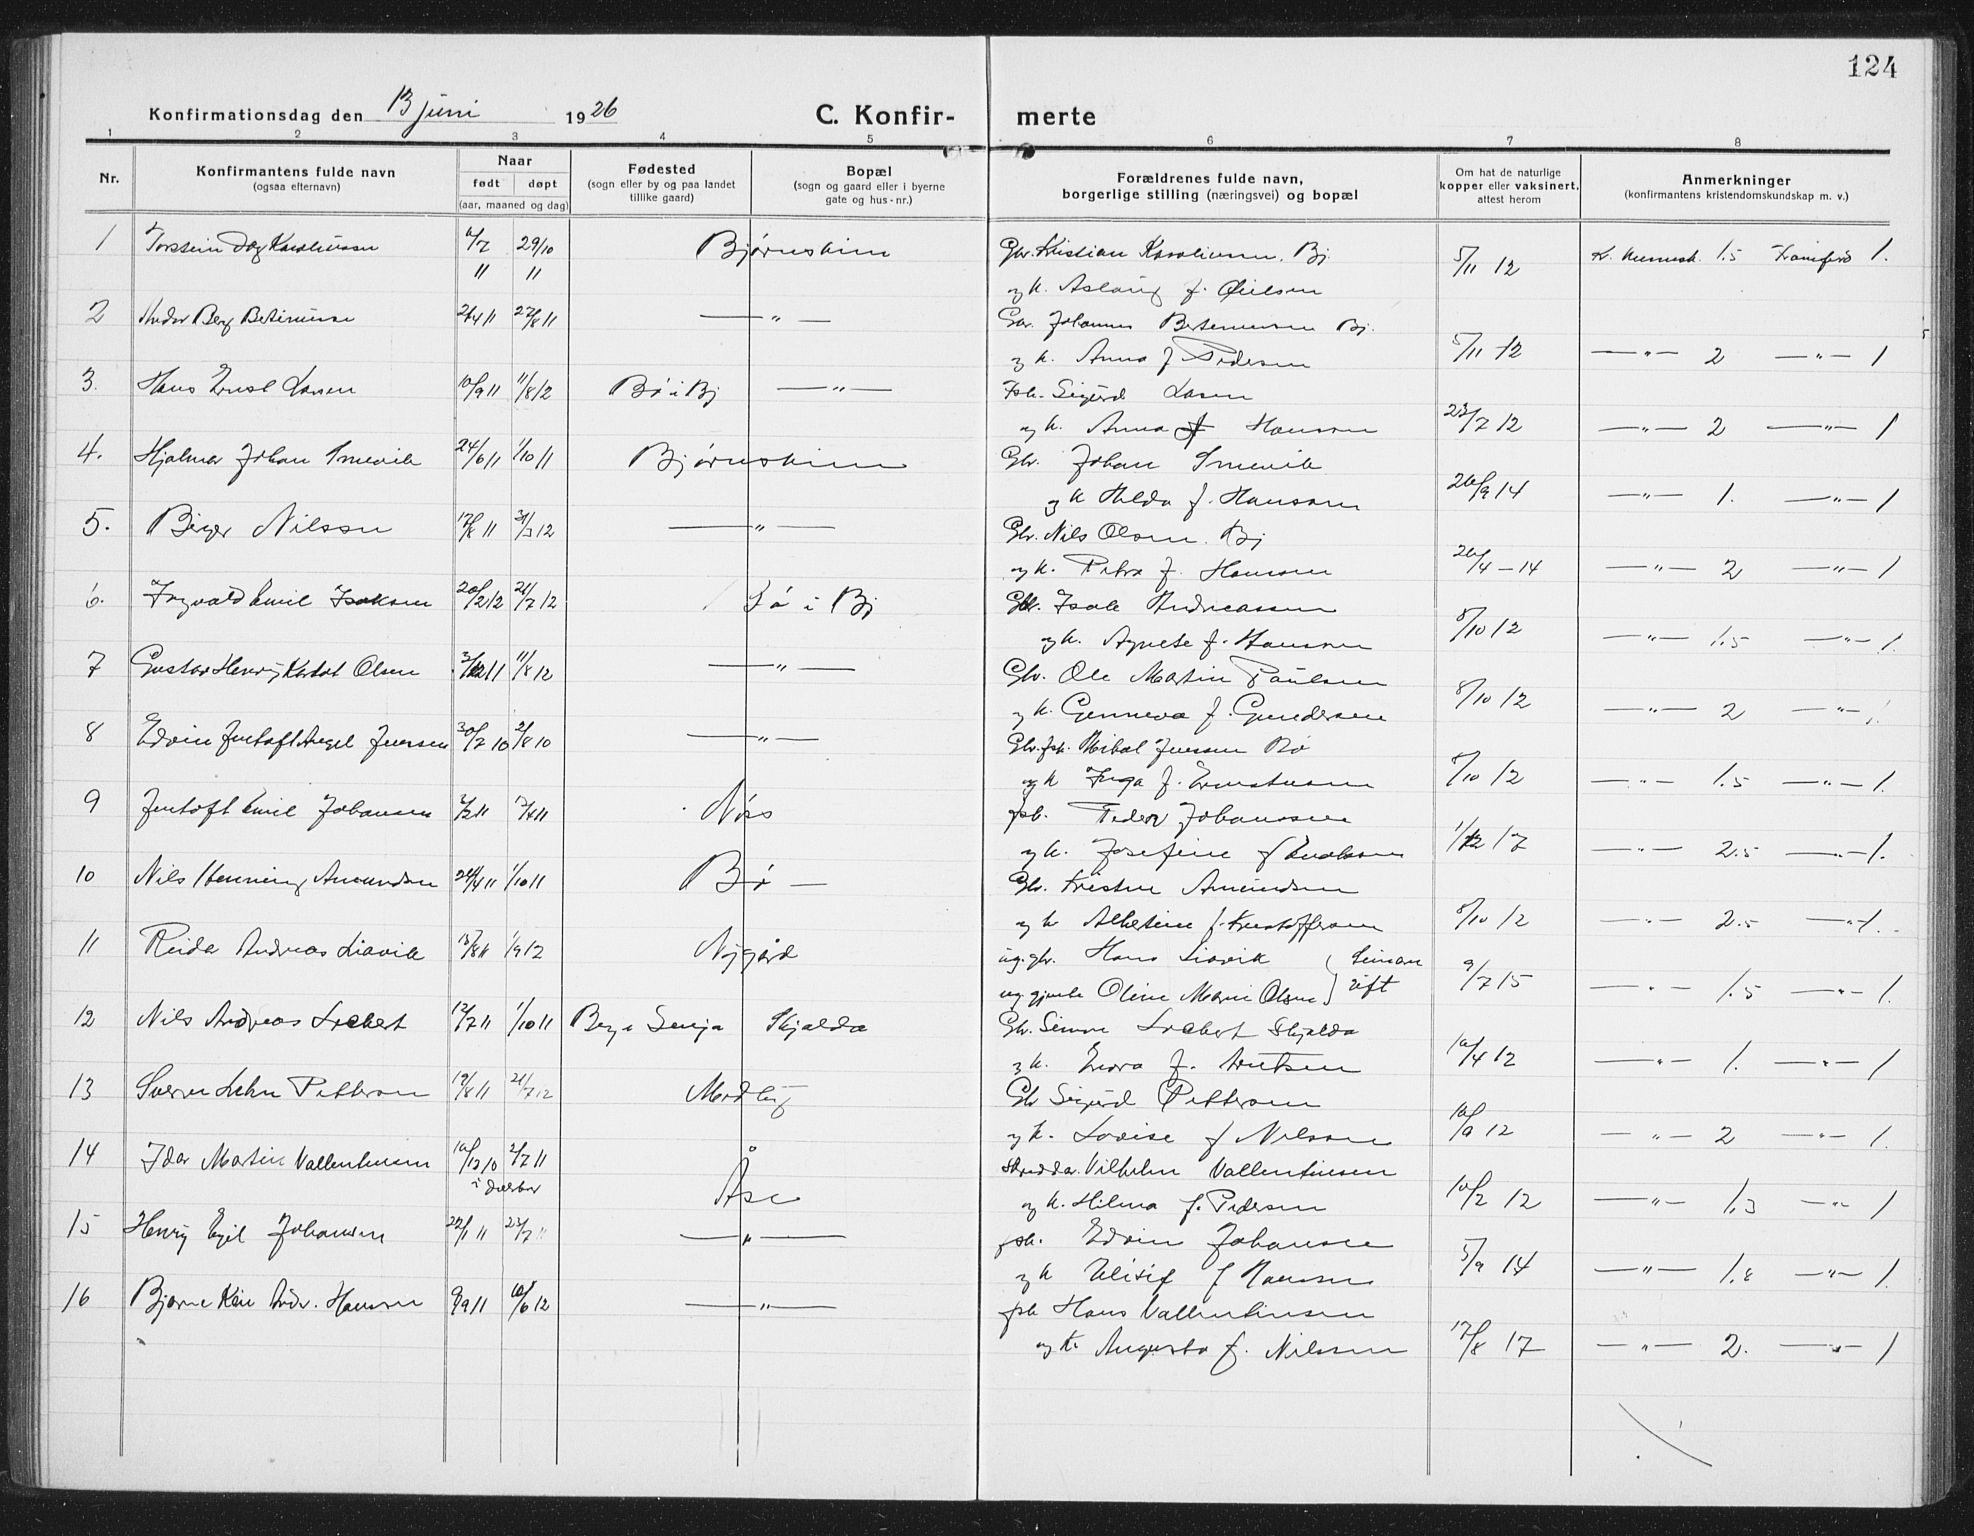 124
Konfirmationsdag den 13 juni 1926
C. Konfirmerte
1 2 3 4 5 6 7 8
Nr.
Konfirmantens fulde navn
(ogsaa efternavn)
Naar
født døpt
(aar, maaned og dag)
Fødested
(sogn eller by og paa landet
tillike gaard)
Bopæl
(sogn og gaard eller i byerne
gate og hus-nr.)
Forældrenes fulde navn,
borgerlige stilling (næringsvei) og bopæl
Om hat de naturlige
kopper eller vaksinert,
attest herom
Anmerkninger
(konfirmantens kristendomskundskap m. v.)
1 Torstein Dag Karoliussen 29/10 Bjørnskinn Gbr. Kristian Karoliussen. Bj. 5/11 12 Kr. kunnsk. 1.5 1.
" " og h. Aslaug f. Nilsen
2 Berg 24/4 11 27/8 11 — " — Gbr. Johannes Bertinussen Bj.
og h. Anna f. Pedersen 5/11 12 — " — 2 — " — 1
3. Hans Ernst Larsen 10/9 11 11/8 12 Bø i Bj — " — Fsk. Sigurd Larsen
og h. Anna f Hansen 23/7 12 — " — 2 — " — 1
4. Hjalmar Johan Smevik 24/6 11 1/10 11 Bjørnskinn Gbr. Johan Smevik
og h Hilda f. Hansen 26/9 14 — " — 1. — " — 1
5. Birger Nilsen 17/8 11 31/3 12 — " — Gbr. Nils Olsen. Bj
og h. Petra f. Hansen 26/4 - 14 — " — 2 — " — 1
6. Ingvald Emil Isaksen 20/2 12 21/7 12 Bø i Bj Gbr. Isak Andreassen
og h. Agnete f. Hansen 8/10 12 — " — 1.5 — " — 1.
7 Gustav Henry Olsen 11/8 12 — " — Gbr. Ole Martin Paulsen
og h. Genneva f. Gundersen 8/10 12 — " — 2 — " — 1.
8 Edvin Jentoft Angel Jenssen 30/7 10 21/8 10 — " — Gbr. fsk. Mikal Jenssen Bø
og h Inga f. 8/10 12 — " — 1.5 — " — 1.
9 Jentoft Emil Johansen Nøss fsk. Peder Johansen
og h. Josefine f 1/12 17 — " — 2.5 — " — 1.
10 Nils Henning Amundsen 24/4 11 1/10 11 Bø — Gbr. Kristen Amundsen
og h Albertine f. Kristoffersen 8/10 12 — " — 2.5 — " — 1.
11 Reidar Andreas Liavik 15/8 11 Nygård ug. gbr. Hans Liavik
ug. gjente Oline Marie Olsen 9/7 15 — " — 1.5 — " — 1.
12 Nils Andreas Lockert 12/7 11 1/10 11 Berg i Senja Skjolda Gbr. Simon Lockert Skjolda
og h. f. Knutsen 10/4 12 — " — 1. — " — 1
13 Sverre Pettersen 19/8 11 21/7 12 Medby Gbr Sigurd Pettersen
og h. Lovise f Nilsen 10/9 12 — " — 2 — " — 1.
14 Idar Martin Vallentinsen 10/12 10 2/7 11 Åse Skredder Vilhelm Vallentinsen
og h. Hilma f. Pedersen 10/2 12 — " — 1.3 — " — 1
15 Henry Egil Johansen 22/1 11 23/7 " — " — fsk. Edvin Johansen
og h f Hanssen 5/9 14 — " — 1.8 — " — 1.
16 Bjarne Andr. Hansen 9/9 11 10/6 12 — " — fsk Hans Vallentinsen
og h. Augusta f. Nilssen 17/8 17 — " — 2. — " — 1